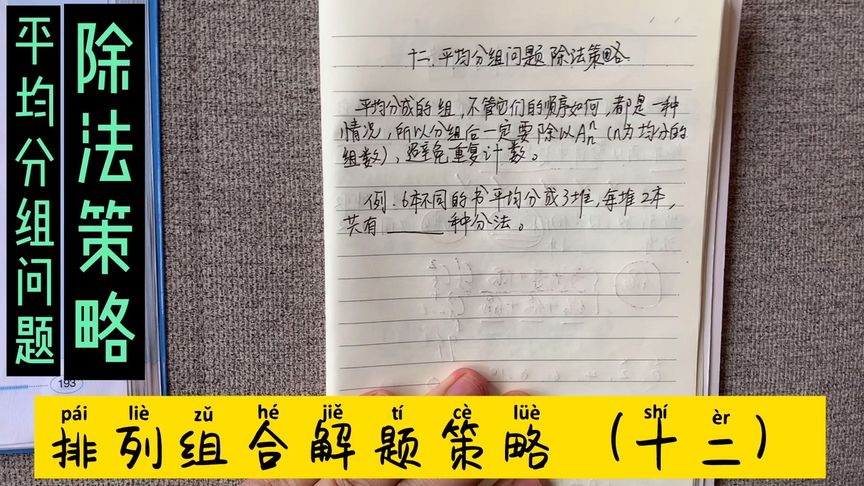 平均分组问题
除法策略
193
十二.平均分组问题除法策略
平均分成的组,不管它们的顺序如何,都是一种
情况,所以分组后一定要除以Aₙⁿ(n为均分的
组数),避免重复计数。
例.6本不同的书平均分成3堆,每堆2本,
共有______种分法。
pái liè zǔ hé jiě tí cè lüè shí èr
排列组合解题策略(十二)